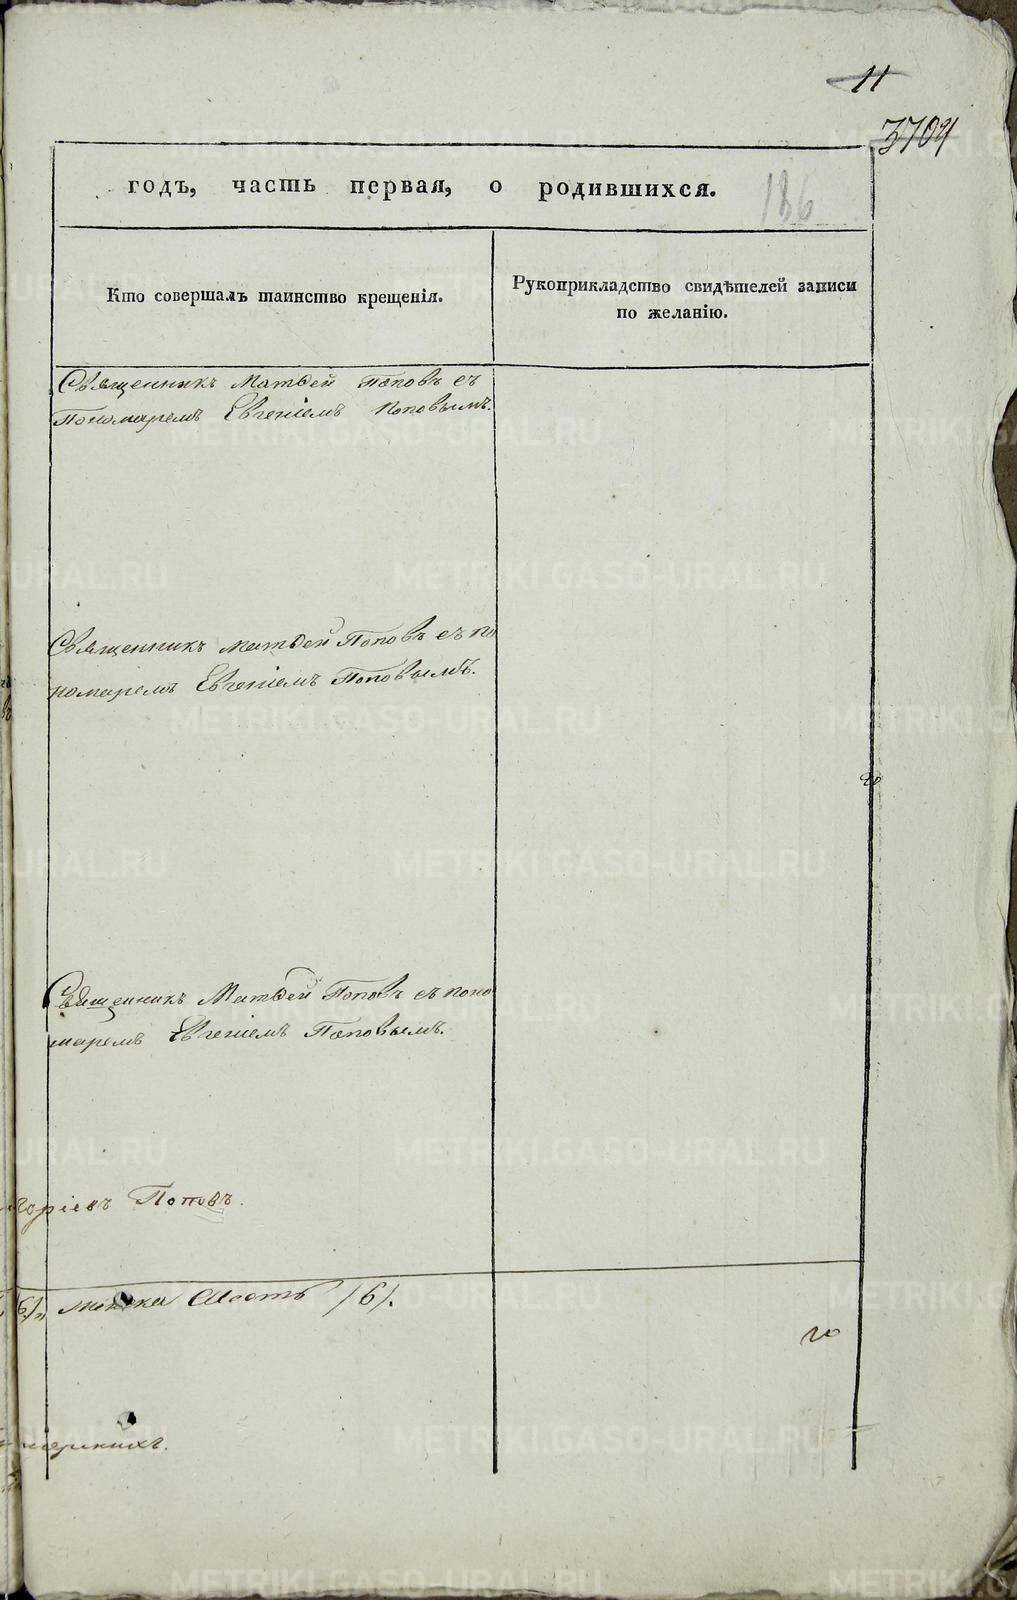 11
3709
годъ, часть первая, о родившихся.
186
Кто совершалъ таинство крещенія.
Рукоприкладство свидѣтелей записи
по желанію.
Священникъ Матѳей Поповъ съ
Пономаремъ Евгеніемъ Поповымъ.
Священникъ Матѳей Поповъ съ по
номаремъ Евгеніемъ Поповымъ.
Священникъ Матѳей Поповъ съ поно
маремъ Евгеніемъ Поповымъ.
Поповъ.
/6/.
METRIKI.GASO-URAL.RU